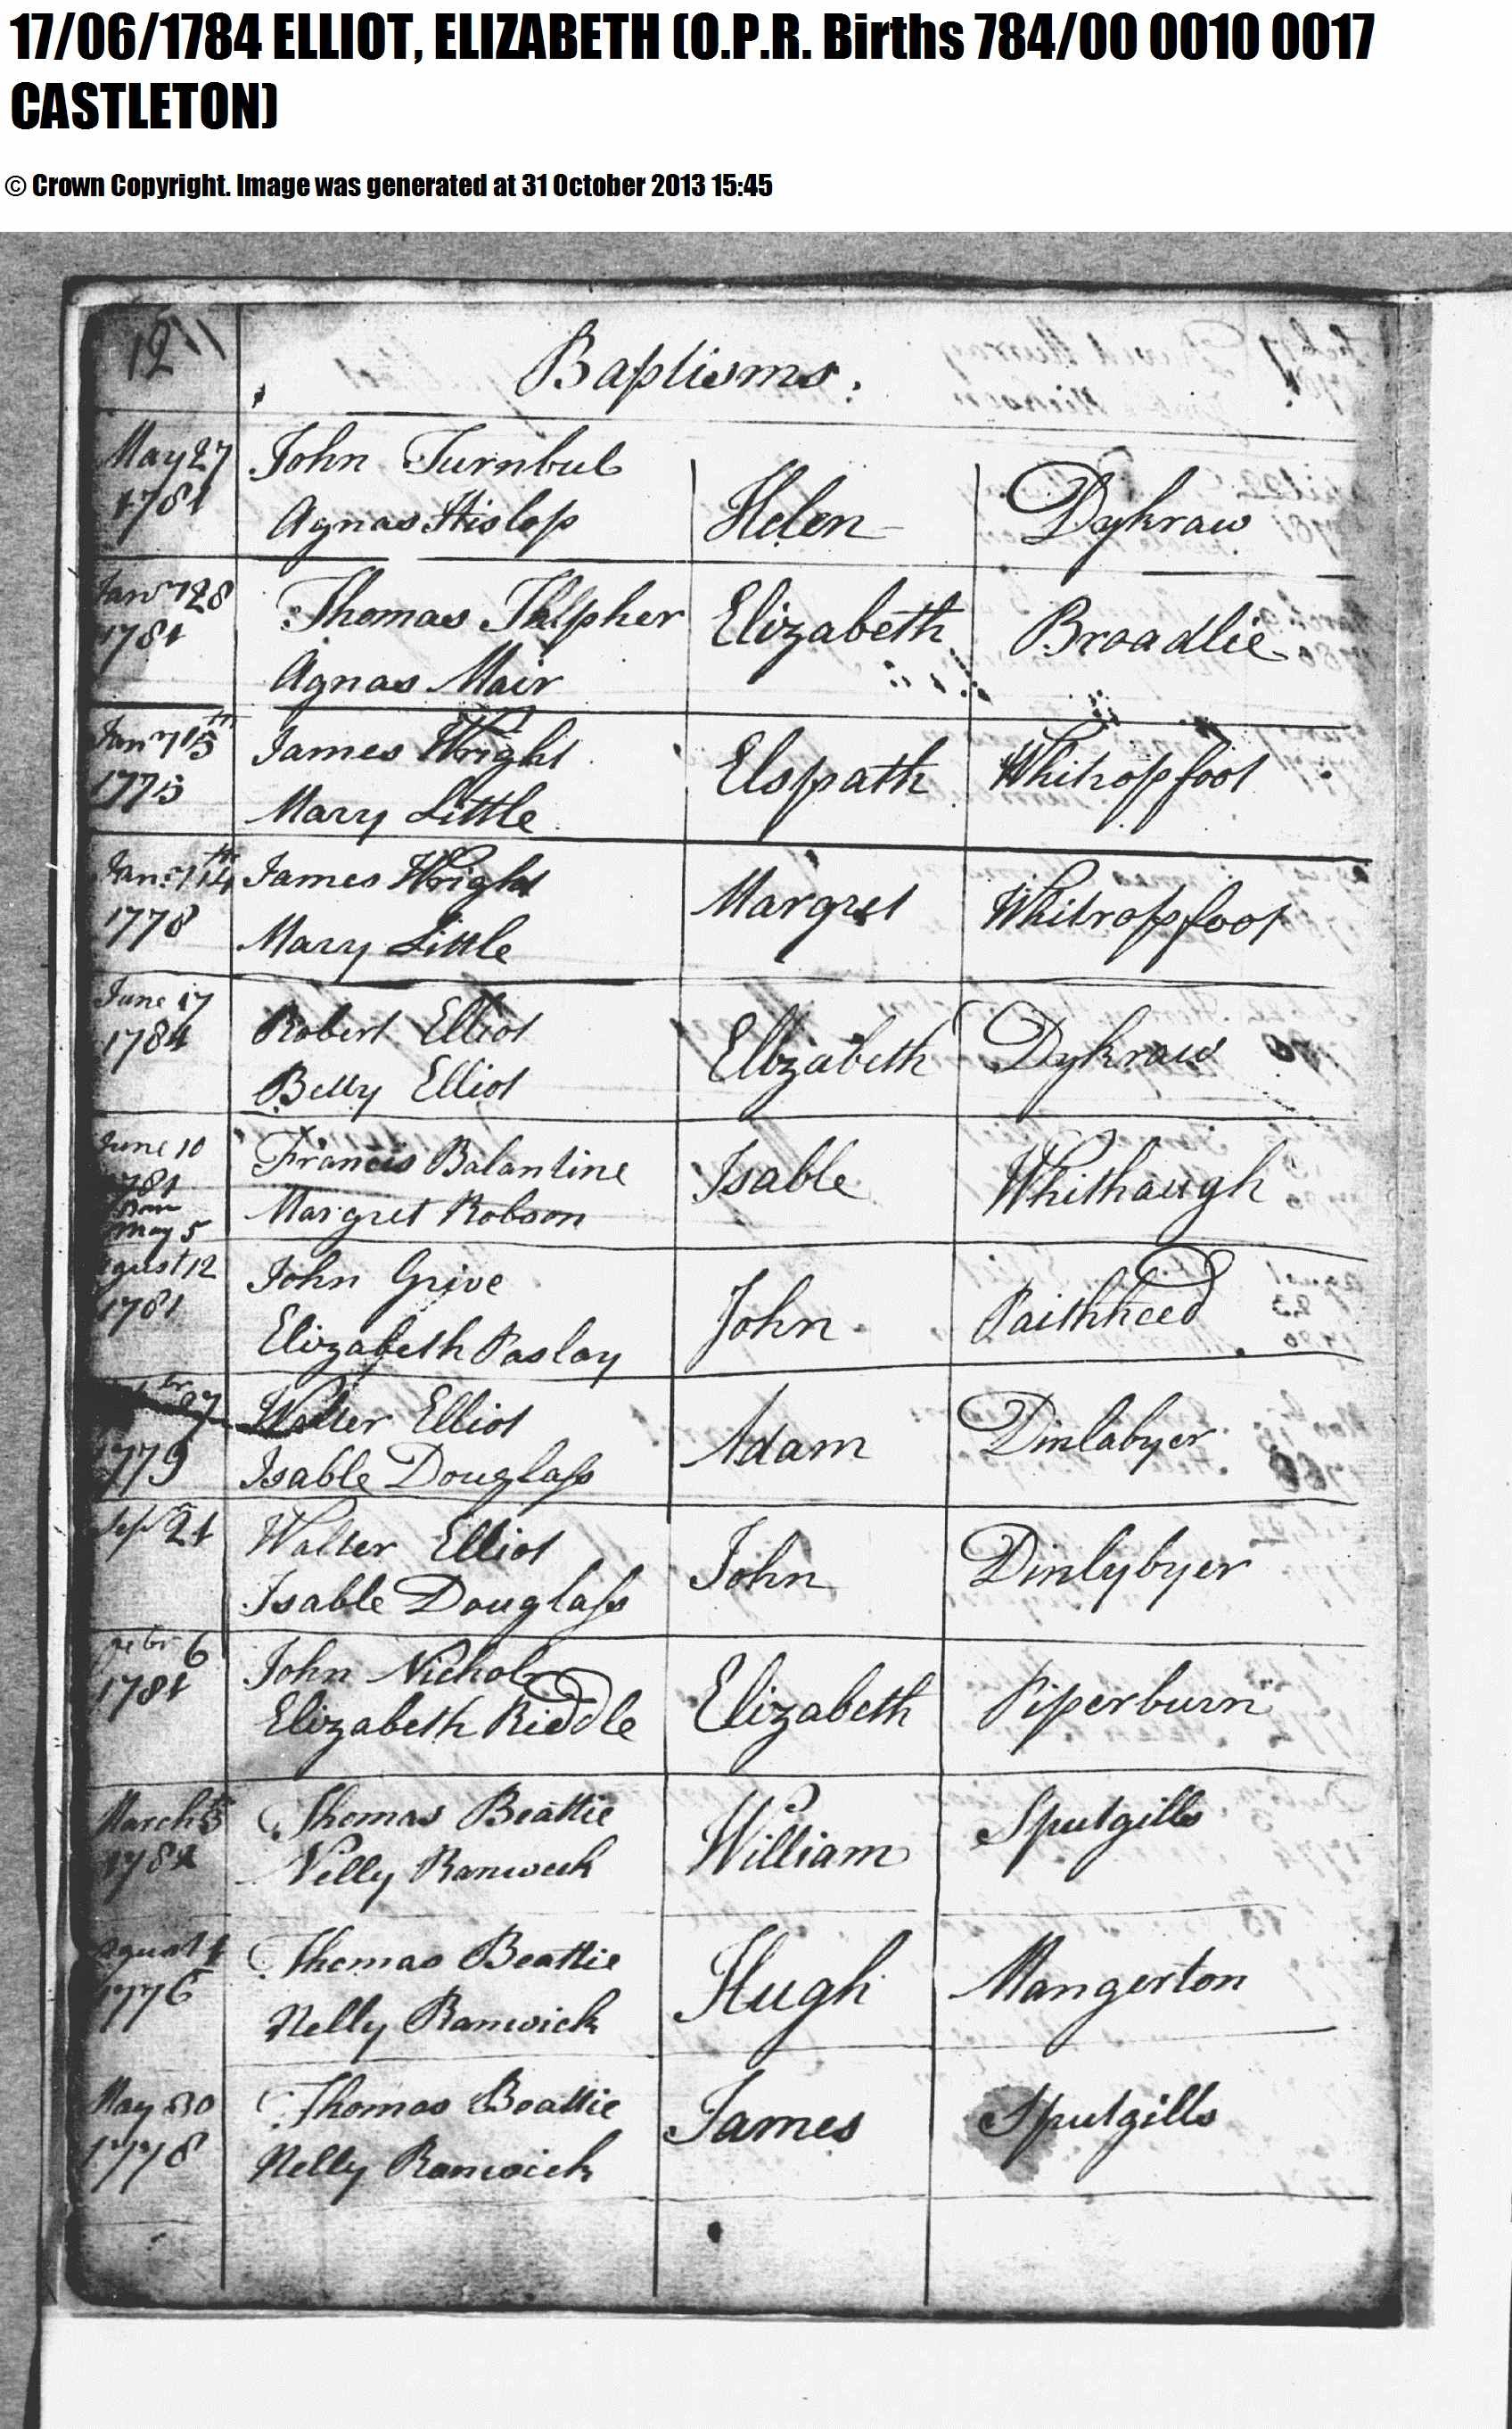 17/06/1784 ELLIOT, ELIZABETH (O.P.R. Births 784/00 0010 0017
CASTLETON)
© Crown Copyright. Image was generated at 31 October 2013 15:45
12
Baptisms
May 27 John Turnbul
1781 Agnas Hislop Helen Dykraw
28 Thomas Elizabeth Broadlie
1781 Agnas Mair
15th James Wright Elspath Whitropfoot
1775 Mary Little
14th James Wright Margret Whitropfoot
1778 Mary Little
June 17 Robert Elliot Elizabeth Dykraw
1784 Betty Elliot
June 10 Francis Balantine Isable Whithaugh
1781 Margret Robson
Born
May 5
gust 12 John Grive John
1781 Elizabeth Paslay
27 Walter Elliot Adam Dinlabyer
1779 Isable Douglass
Sepr 21 Walter Elliot John Dinlybyer
Isable Douglass
6 John Nichol Elizabeth Piperburn
1781 Elizabeth Riddle
March 5 Thomas Beattie William Sputgills
Nelly Ranwick
Thomas Beattie Hugh Mangerton
1776 Nelly Ranwick
May 30 Thomas Beattie James Sputgills
1778 Nelly Ranwick